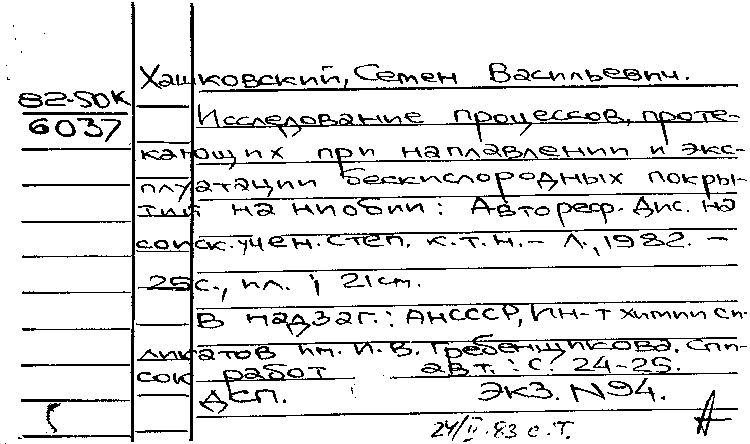 Хашковский, Семен Васильевич.
82-5DK
6037
Исследование процессов, проте-
кающих при наплавлении и экс-
плуатации бескислородных покры-
тий на ниобии: Автореф. Дис. на
соиск. учен. степ. к.т.н. – Л., 1982. –
25с., ил. ; 21см.
В надзаг.: АНСССР, Ин-т химии си-
ликатов им. И.В. Гребенщикова. Спи-
сок работ авт.: с. 24-25.
ДСП. ЭКЗ. N94.
24/II.83 с.т.